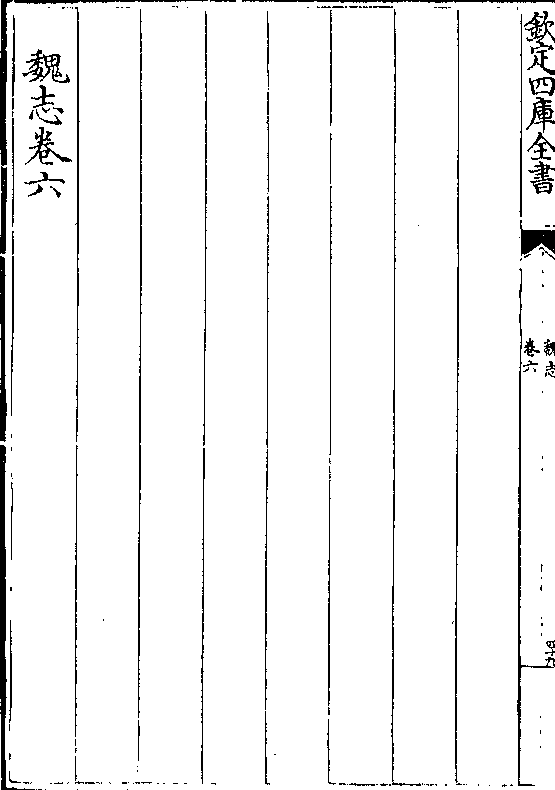 欽定四庫全書
魏志
卷六
四十九
魏志卷六